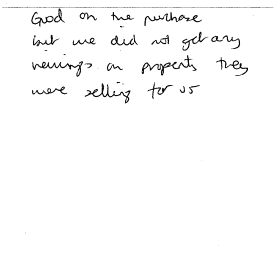 Good on the purchase
but we did not get any
viewings on property they
were selling for us